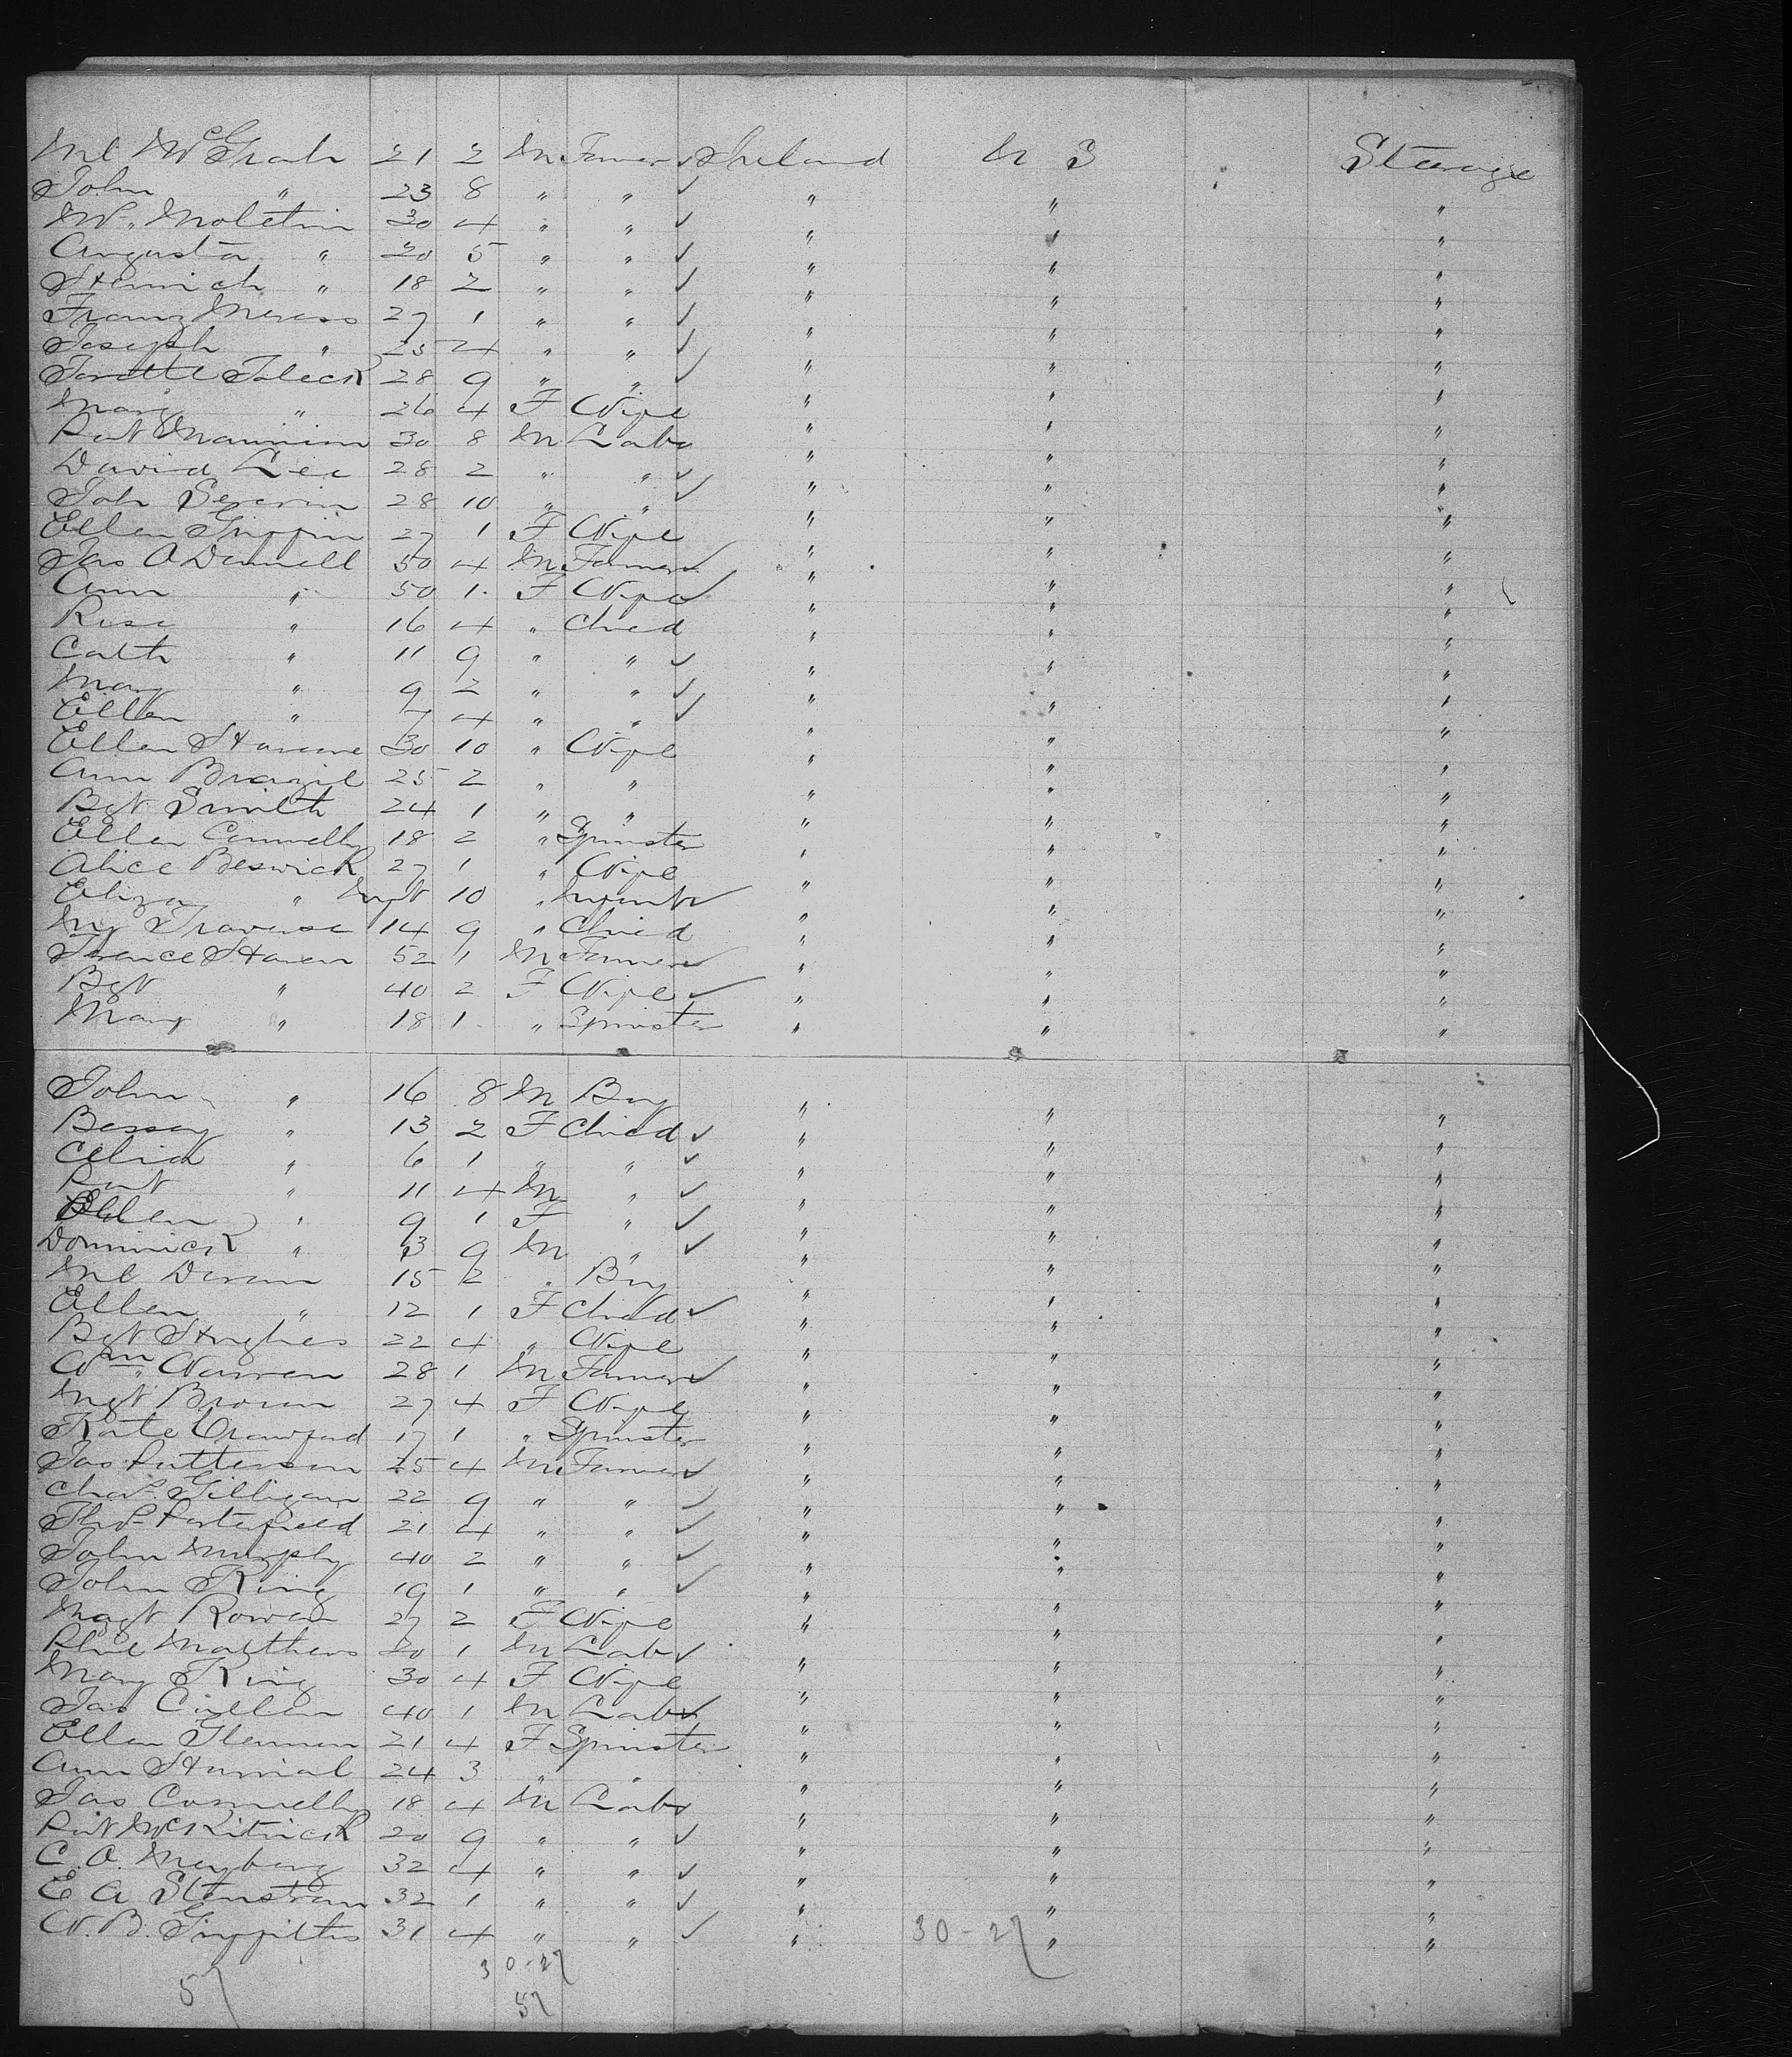 Ml McGrath 21 2 M Farmer ✓ Ireland U S Steerage
John " 23 8 " " ✓ " " "
Wm Moletin 30 4 " " ✓ " " "
Augusta " 20 5 " " ✓ " " "
Heinrich " 18 2 " " ✓ " " "
Franz Meress 27 1 " " ✓ " " "
Joseph " 25 4 " " ✓ " " "
Faleck 28 9 " " ✓ " " "
Mary " 26 4 F Wife " " "
Pat 30 8 M Labr " " "
David Lee 28 2 " " ✓ " " "
Joh Severin 28 10 " " ✓ " " "
Ellen Griffin 27 1 F Wife " " "
Jas O Donnell 50 4 M Farmer ✓ " " "
Ann " 50 1 F Wife ✓ " " "
Rose " 16 4 " Child " " "
Cath " 11 9 " " ✓ " " "
Mary " 9 2 " " ✓ " " "
Ellen " 7 4 " " ✓ " " "
Ellen 30 10 " Wife " " "
Ann Brazil 25 2 " " " " "
Bgt Smith 24 1 " " " " "
Ellen Connelly 18 2 " Spinster " " "
Alice Beswick 27 1 " Wife " " "
Eliza " Inft 10 " Infant ✓ " " "
My Traverse 14 9 " Child " " "
Terence Haven 52 1 M Farmer ✓ " " "
Bgt " 40 2 F Wife ✓ " " "
Mary " 18 1 " Spinster " " "
John " 16 8 M Boy " " "
Bessy " 13 2 F Child ✓ " " "
Celia " 6 1 " " ✓ " " "
Pat " 11 4 M " ✓ " " "
Ellen " 9 1 F " ✓ " " "
Dominick " 3 9 M " ✓ " " "
Ml Doran 15 2 " Boy " " "
Ellen " 12 1 F Child ✓ " " "
Bgt Hughes 22 4 " Wife " " "
Wm Warren 28 1 M Farmer ✓ " " "
Mgt Brown 27 4 F Wife " " "
Kate Crawford 17 1 " Spinster " " "
Jas Patterson 25 4 M Farmer ✓ " " "
Chas Gilligan 22 9 " " ✓ " " "
Thos Porterfield 21 4 " " ✓ " " "
John Murphy 40 2 " " ✓ " " "
John King 19 1 " " ✓ " " "
Magt Rowen 27 2 F Wife " " "
Phil Matthews 20 1 M Labr ✓ " " "
Mary King 30 4 F Wife " " "
Jas Cullen 40 1 M Labr ✓ " " "
Ellen Glennon 21 4 F Spinster " " "
Ann 24 3 " " " " "
Jas Connelly 18 4 M Labr " " "
Pat McKitrick 20 9 " " ✓ " " "
C. O. Meyberg 32 4 " " ✓ " " "
E A Stenstrom 32 1 " " ✓ " " "
W. B. Griffiths 31 4 " " ✓ " 30-27 " "
57 30-27
57